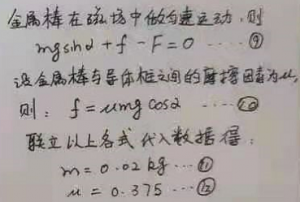 金属棒在磁场中做匀速运动,则
mgsinα + f - F = 0 ······ ⑨
设金属棒与导体框之间的摩擦因素为μ,
则: f = μmg cosα ······ ⑩
联立以上各式 代入数据得:
m = 0.02 kg ··· ⑪
μ = 0.375 ··· ⑫